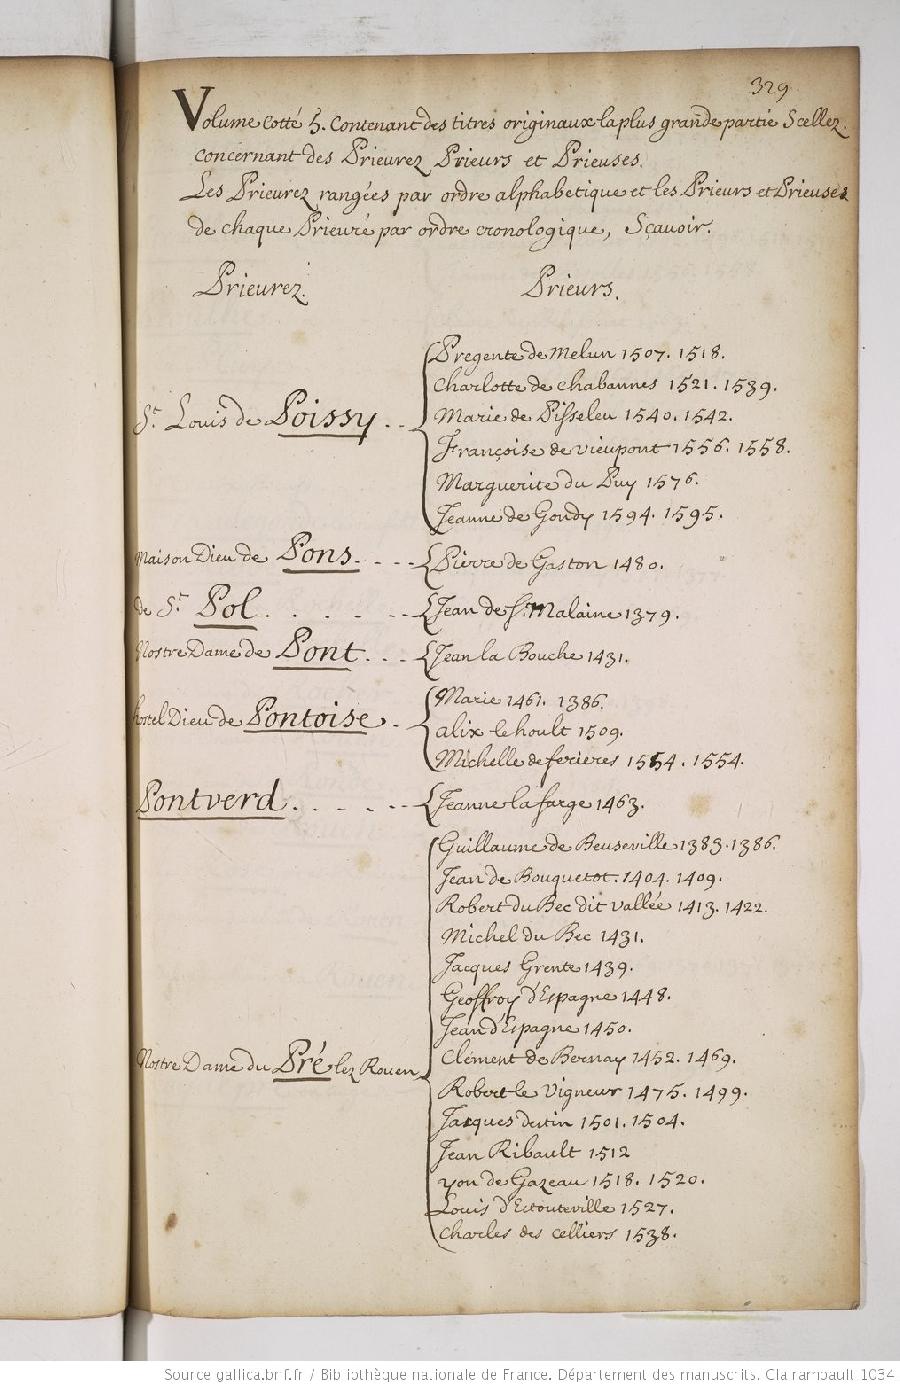 329
Volume cotté 5. Contenant des titres originaux la plus grande partie Scellez.
concernant des Prieurez Prieurs et Prieuses.
Les Prieurez rangées par ordre alphabetique et les Prieurs et Prieuses
de chaque Prieuré par ordre cronologique, Sçavoir.
Prieurez. Prieurs.
Pregente de Melun 1507. 1518.
Charlotte de Chabannes 1521. 1539.
Marie de Pisseleu 1540. 1542.
St. Louis de Poissy
Françoise de vieupont 1556. 1558.
Marguerite du Puy 1576.
Jeanne de Gondy 1594. 1595.
Maison Dieu de Pons. Pierre de Gaston 1480.
de St. Pol Jean de St. Malaine 1379.
Nostre Dame de Pont Jean la Bouche 1431.
Marie 1461. 1386.
hostel Dieu de Pontoise alix le hoult 1509.
Michelle de ferieres 1554. 1554.
Pontverd Jeanne la farge 1463.
Guillaume de Beuseville 1383. 1386.
Jean de Bouquetot. 1404. 1409.
Robert du Bec dit vallée 1413. 1422.
Michel du Bec 1431.
Jacques Grente 1439.
Geoffroy d'Espagne 1448.
Jean d'Espagne 1450.
Clement de Bernay 1452. 1469.
Nostre Dame du Pré lez Rouen
Robert le Vigneur 1475. 1499.
Jacques dutin 1501. 1504.
Jean Ribault 1512
yon de Gazeau 1518. 1520.
Louis d'Estouteville 1527.
Charles des celliers 1538.
Source gallica.bnf.fr / Bibliothèque nationale de France. Département des manuscrits. Clairambault 1034